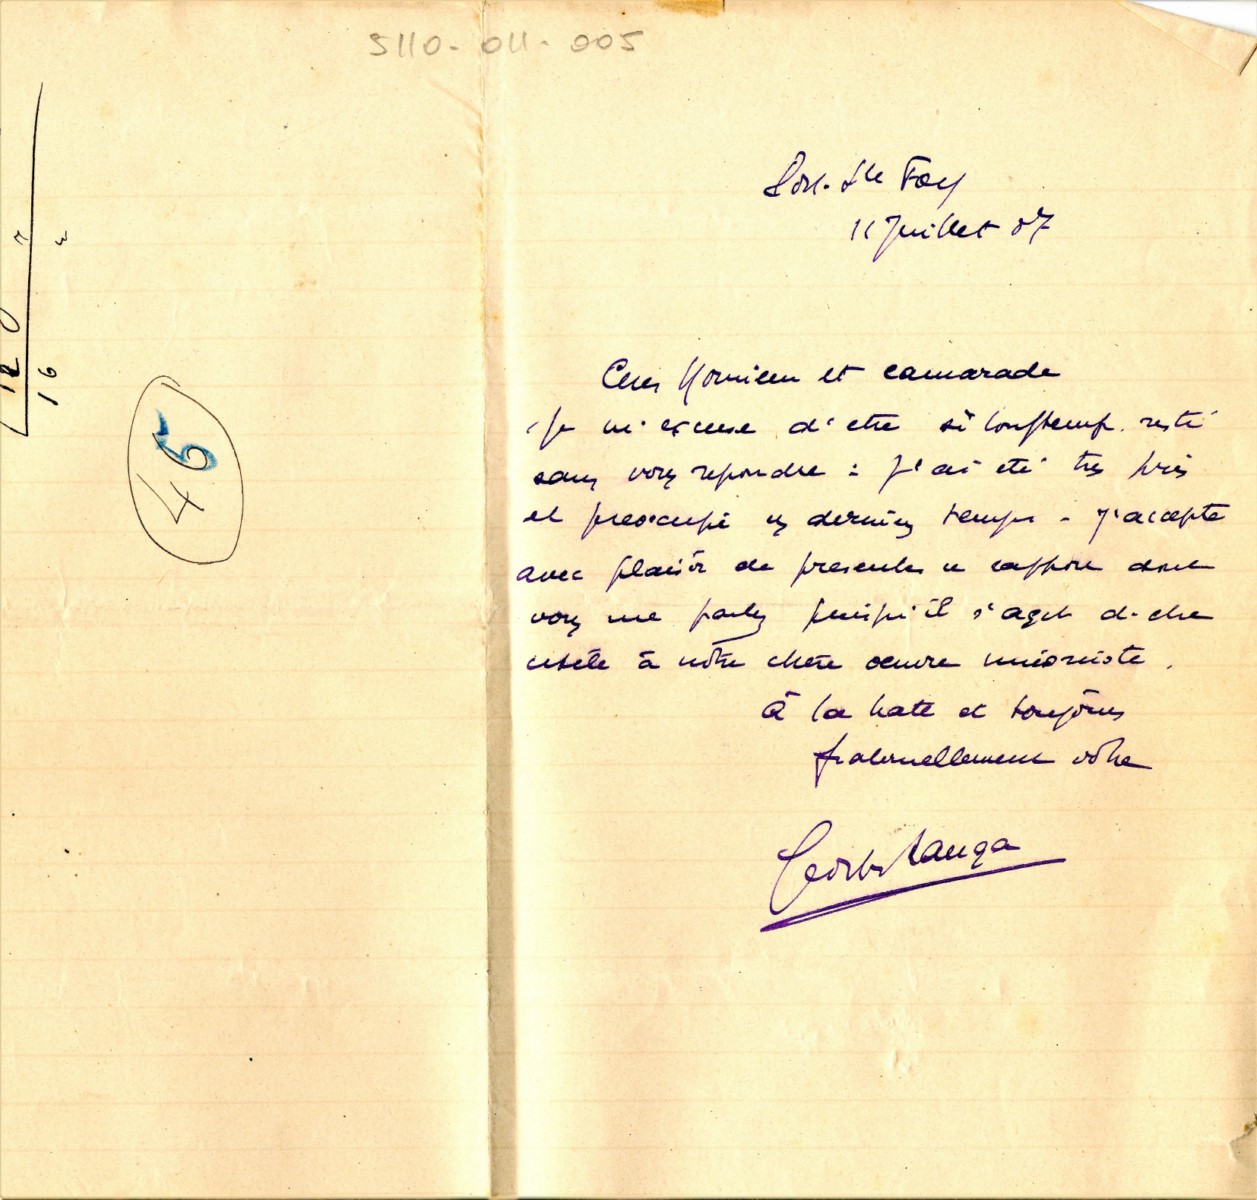 5110-011-005
Ste Foy
11 Juillet 07
Cher Monsieur et camarade
Je m'excuse d'etre si longtemps resté
sans vous repondre : j'ai eté tres pris
et preoccupé ces derniers temps - J'accepte
avec plaisir de presenter le rapport dont
vous me parlez puisqu'il s'agit d'etre
utile à nôtre chère oeuvre unioniste.
À la hate et toujours
fraternellement vôtre
45
12 0 2
16 3